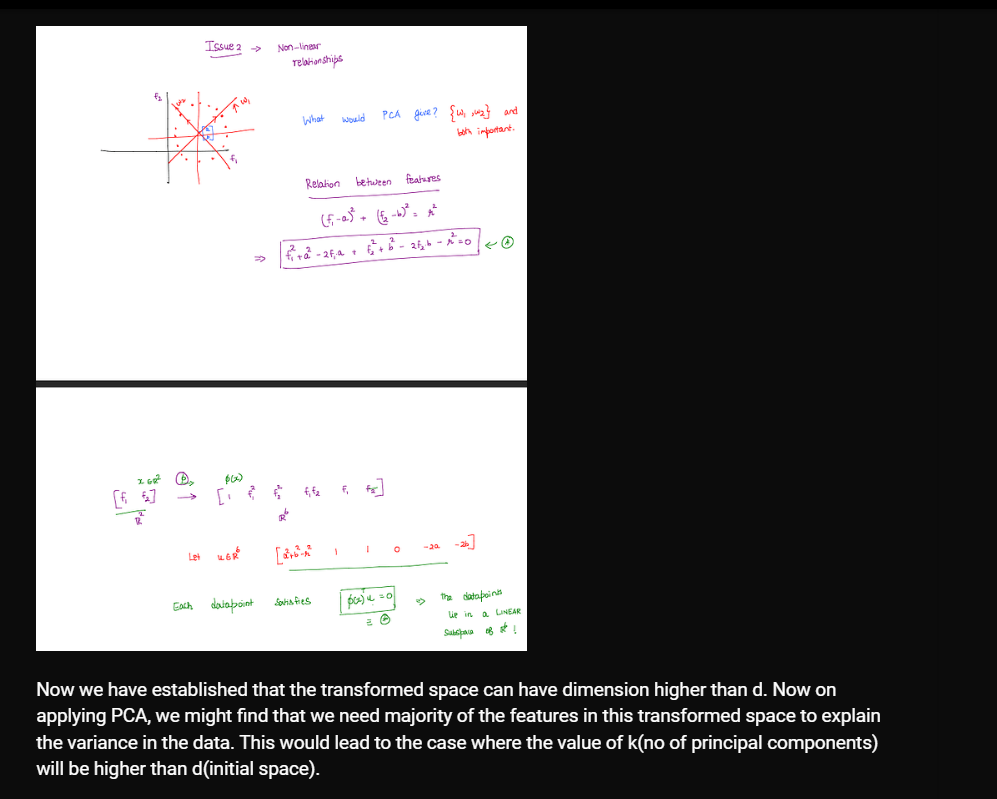 Issue 2 → Non-linear
relationships
f₂ w₂ ↑ w₁
f₁
What would PCA give? {w₁, w₂} and
both important.
Relation between features
(f₁-a)² + (f₂-b)² = r²
⇒ f₁² + a² - 2f₁a + f₂² + b² - 2f₂b - r² = 0 ←
x ∈ R² φ φ(x)
[f₁ f₂] → [1 f₁² f₂² f₁f₂ f₁ f₂]
R² R⁶
Let u ∈ R⁶ [a²+b²-r² 1 1 0 -2a -2b]
Each datapoint satisfies φ(x)ᵀu = 0 ⇒ The datapoints
≡ lie in a LINEAR
Subspace of R⁶!
Now we have established that the transformed space can have dimension higher than d. Now on
applying PCA, we might find that we need majority of the features in this transformed space to explain
the variance in the data. This would lead to the case where the value of k(no of principal components)
will be higher than d(initial space).